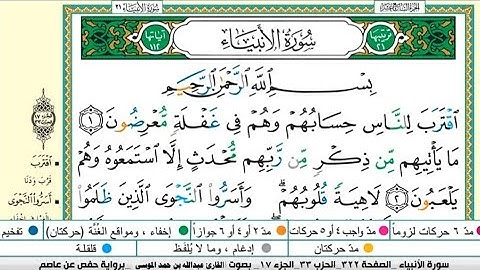 سورة الأنبياء ٢١
الجزء السابع عشر
ترتيبها ٢١
سُورَةُ الأَنبِيَاءِ
آياتها ١١٢
بِسْمِ ٱللَّهِ ٱلرَّحْمَٰنِ ٱلرَّحِيمِ
ٱقْتَرَبَ لِلنَّاسِ حِسَابُهُمْ وَهُمْ فِى غَفْلَةٍ مُّعْرِضُونَ ١
مَا يَأْتِيهِم مِّن ذِكْرٍ مِّن رَّبِّهِم مُّحْدَثٍ إِلَّا ٱسْتَمَعُوهُ وَهُمْ
يَلْعَبُونَ ٢ لَاهِيَةً قُلُوبُهُمْ ۗ وَأَسَرُّوا۟ ٱلنَّجْوَى ٱلَّذِينَ ظَلَمُوا۟
اقْتَرَبَ
قَرُبَ وَدَنَا
أَسَرُّوا النَّجْوَى
مدّ ٦ حركات لزوماً
مدّ واجب ٤ أو ٥ حركات
مدّ ٢ أو ٤ أو ٦ جوازاً
إخفاء، ومواقع الغُنَّة (حركتان)
تفخيم
مدّ حركتان
إدغام، وما لا يُلفَظ
قلقلة
سورة الأنبياء _ الصفحة ٣٢٢ _ الحزب ٣٣ _ الجزء ١٧ _ بصوت القارئ عبدالله بن حمد الموسى _ برواية حفص عن عاصم